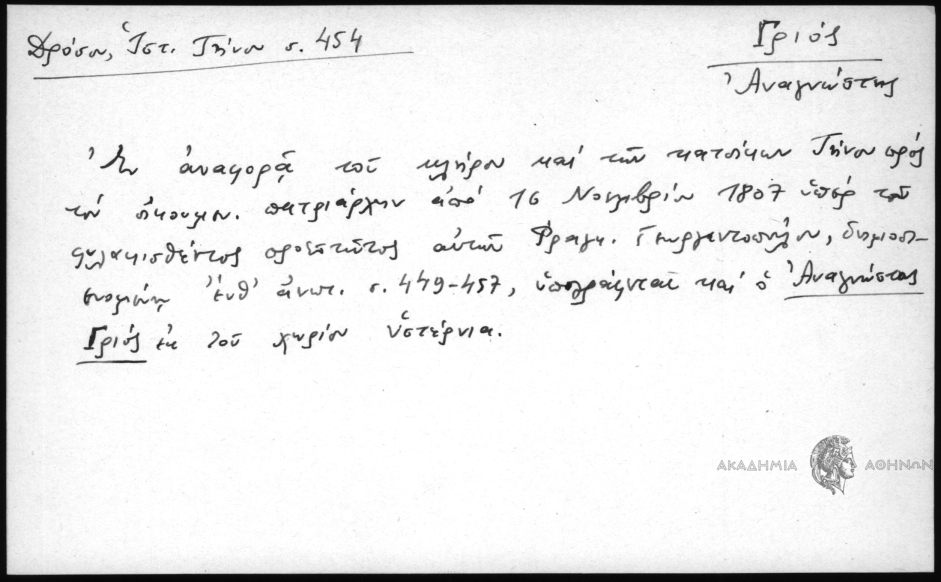 Δρόσου, Ἱστ. Τήνου σ. 454
Γριός
Ἀναγνώστης
Ἐν ἀναφορᾷ τοῦ κλήρου καὶ τῶν κατοίκων Τήνου πρὸς
τὸν οἰκουμεν. πατριάρχην ἀπὸ 16 Νοεμβρίου 1807 ὑπὲρ τοῦ
φυλακισθέντος προεστῶτος αὐτῶν Φραγκ. Γεωργαντοπούλου, δημοσι-
ευομένῃ ἔνθ' ἀνωτ. σ. 449-457, ὑπογράφεται καὶ ὁ Ἀναγνώστης
Γριός ἐκ τοῦ χωρίου Ὑστέρνια.
ΑΚΑΔΗΜΙΑ ΑΘΗΝΩΝ